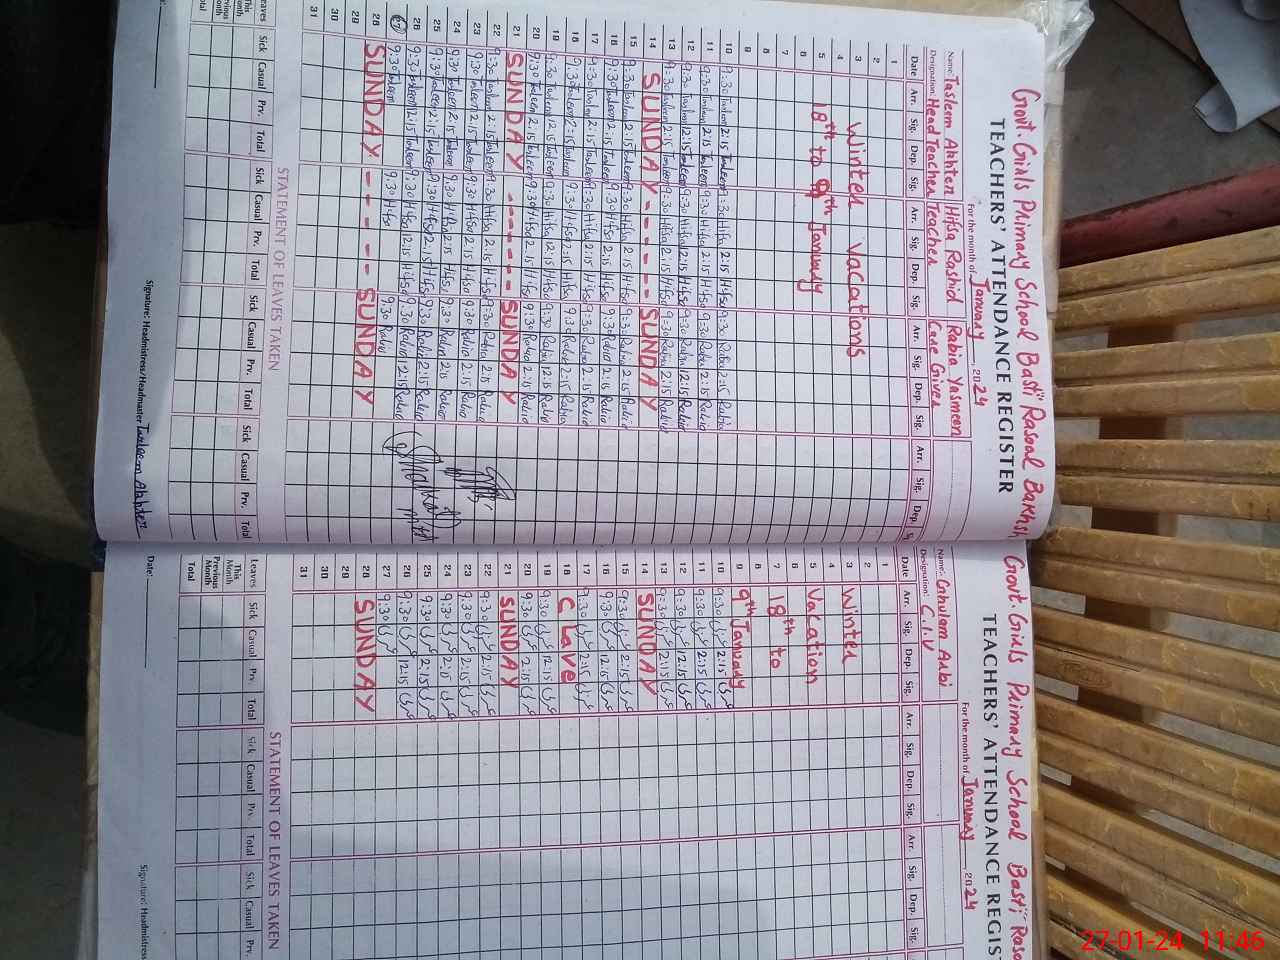 Govt. Girls Primary School Basti Rasool Bakhsh
TEACHERS' ATTENDANCE REGISTER
For the month of January 2024
Name: Tasleem Akhter Hifsa Rashid Rabia Yasmeen
Designation: Head Teacher Teacher Care Giver
Date Arr. Sig. Dep. Sig. Arr. Sig. Dep. Sig. Arr. Sig. Dep. Sig. Arr. Sig. Dep.
1
2
3 Winter vacations
4
5 18th to 9th January
6
7
8
9
10 9:30 Tasleem 2:15 Tasleem 9:30 Hifsa 2:15 Hifsa 9:30 Rabia 2:15 Rabia
11 9:30 Tasleem 2:15 Tasleem 9:30 Hifsa 2:15 Hifsa 9:30 Rabia 2:15 Rabia
12 9:30 Tasleem 12:15 Tasleem 9:30 Hifsa 12:15 Hifsa 9:30 Rabia 12:15 Rabia
13 9:30 Tasleem 2:15 Tasleem 9:30 Hifsa 2:15 Hifsa 9:30 Rabia 2:15 Rabia
14 SUNDAY - - - - - - SUNDAY
15 9:30 Tasleem 2:15 Tasleem 9:30 Hifsa 2:15 Hifsa 9:30 Rabia 2:15 Rabia
16 9:30 Tasleem 2:15 Tasleem 9:30 Hifsa 2:15 Hifsa 9:30 Rabia 2:15 Rabia
17 9:30 Tasleem 2:15 Tasleem 9:30 Hifsa 2:15 Hifsa 9:30 Rabia 2:15 Rabia
18 9:30 Tasleem 2:15 Tasleem 9:30 Hifsa 2:15 Hifsa 9:30 Rabia 2:15 Rabia
19 9:30 Tasleem 12:15 Tasleem 9:30 Hifsa 12:15 Hifsa 9:30 Rabia 12:15 Rabia
20 9:30 Tasleem 2:15 Tasleem 9:30 Hifsa 2:15 Hifsa 9:30 Rabia 2:15 Rabia
21 SUNDAY - - - - - - SUNDAY
22 9:30 Tasleem 2:15 Tasleem 9:30 Hifsa 2:15 Hifsa 9:30 Rabia 2:15 Rabia
23 9:30 Tasleem 2:15 Tasleem 9:30 Hifsa 2:15 Hifsa 9:30 Rabia 2:15 Rabia
24 9:30 Tasleem 2:15 Tasleem 9:30 Hifsa 2:15 Hifsa 9:30 Rabia 2:15 Rabia
25 9:30 Tasleem 2:15 Tasleem 9:30 Hifsa 2:15 Hifsa 9:30 Rabia 2:15 Rabia
26 9:30 Tasleem 12:15 Tasleem 9:30 Hifsa 12:15 Hifsa 9:30 Rabia 12:15 Rabia
27 9:30 Tasleem 9:30 Hifsa 9:30 Rabia
28 SUNDAY - - - - - SUNDAY
29
30
31
STATEMENT OF LEAVES TAKEN
Leaves Sick Casual Prv. Total Sick Casual Prv. Total Sick Casual Prv. Total Sick Casual Prv. Total
This Month
Previous Month
Total
Signature: Headmistress/Headmaster Tasleem Akhter
Govt. Girls Primary School Basti Raso
TEACHERS' ATTENDANCE REGIS
For the month of January 2024
Name: Ghulam Nabi
Designation: C.I.V
Date Arr. Sig. Dep. Sig. Arr. Sig. Dep. Sig. Arr. Sig. Dep. Sig.
1
2
3 Winter
4
5 Vacation
6
7 18th to
8
9 9th January
10 9:30 2:15
11 9:30 2:15
12 9:30 12:15
13 9:30 2:15
14 SUNDAY
15 9:30 2:15
16 9:30 2:15
17 9:30 2:15
18 C Lave
19 9:30 12:15
20 9:30 2:15
21 SUNDAY
22 9:30 2:15
23 9:30 2:15
24 9:30 2:15
25 9:30 2:15
26 9:30 12:15
27 9:30
28 SUNDAY
29
30
31
STATEMENT OF LEAVES TAKEN
Leaves Sick Casual Prv. Total Sick Casual Prv. Total Sick Casual Prv.
This Month
Previous Month
Total
Date:
Signature: Headmistress
27-01-24 11:46